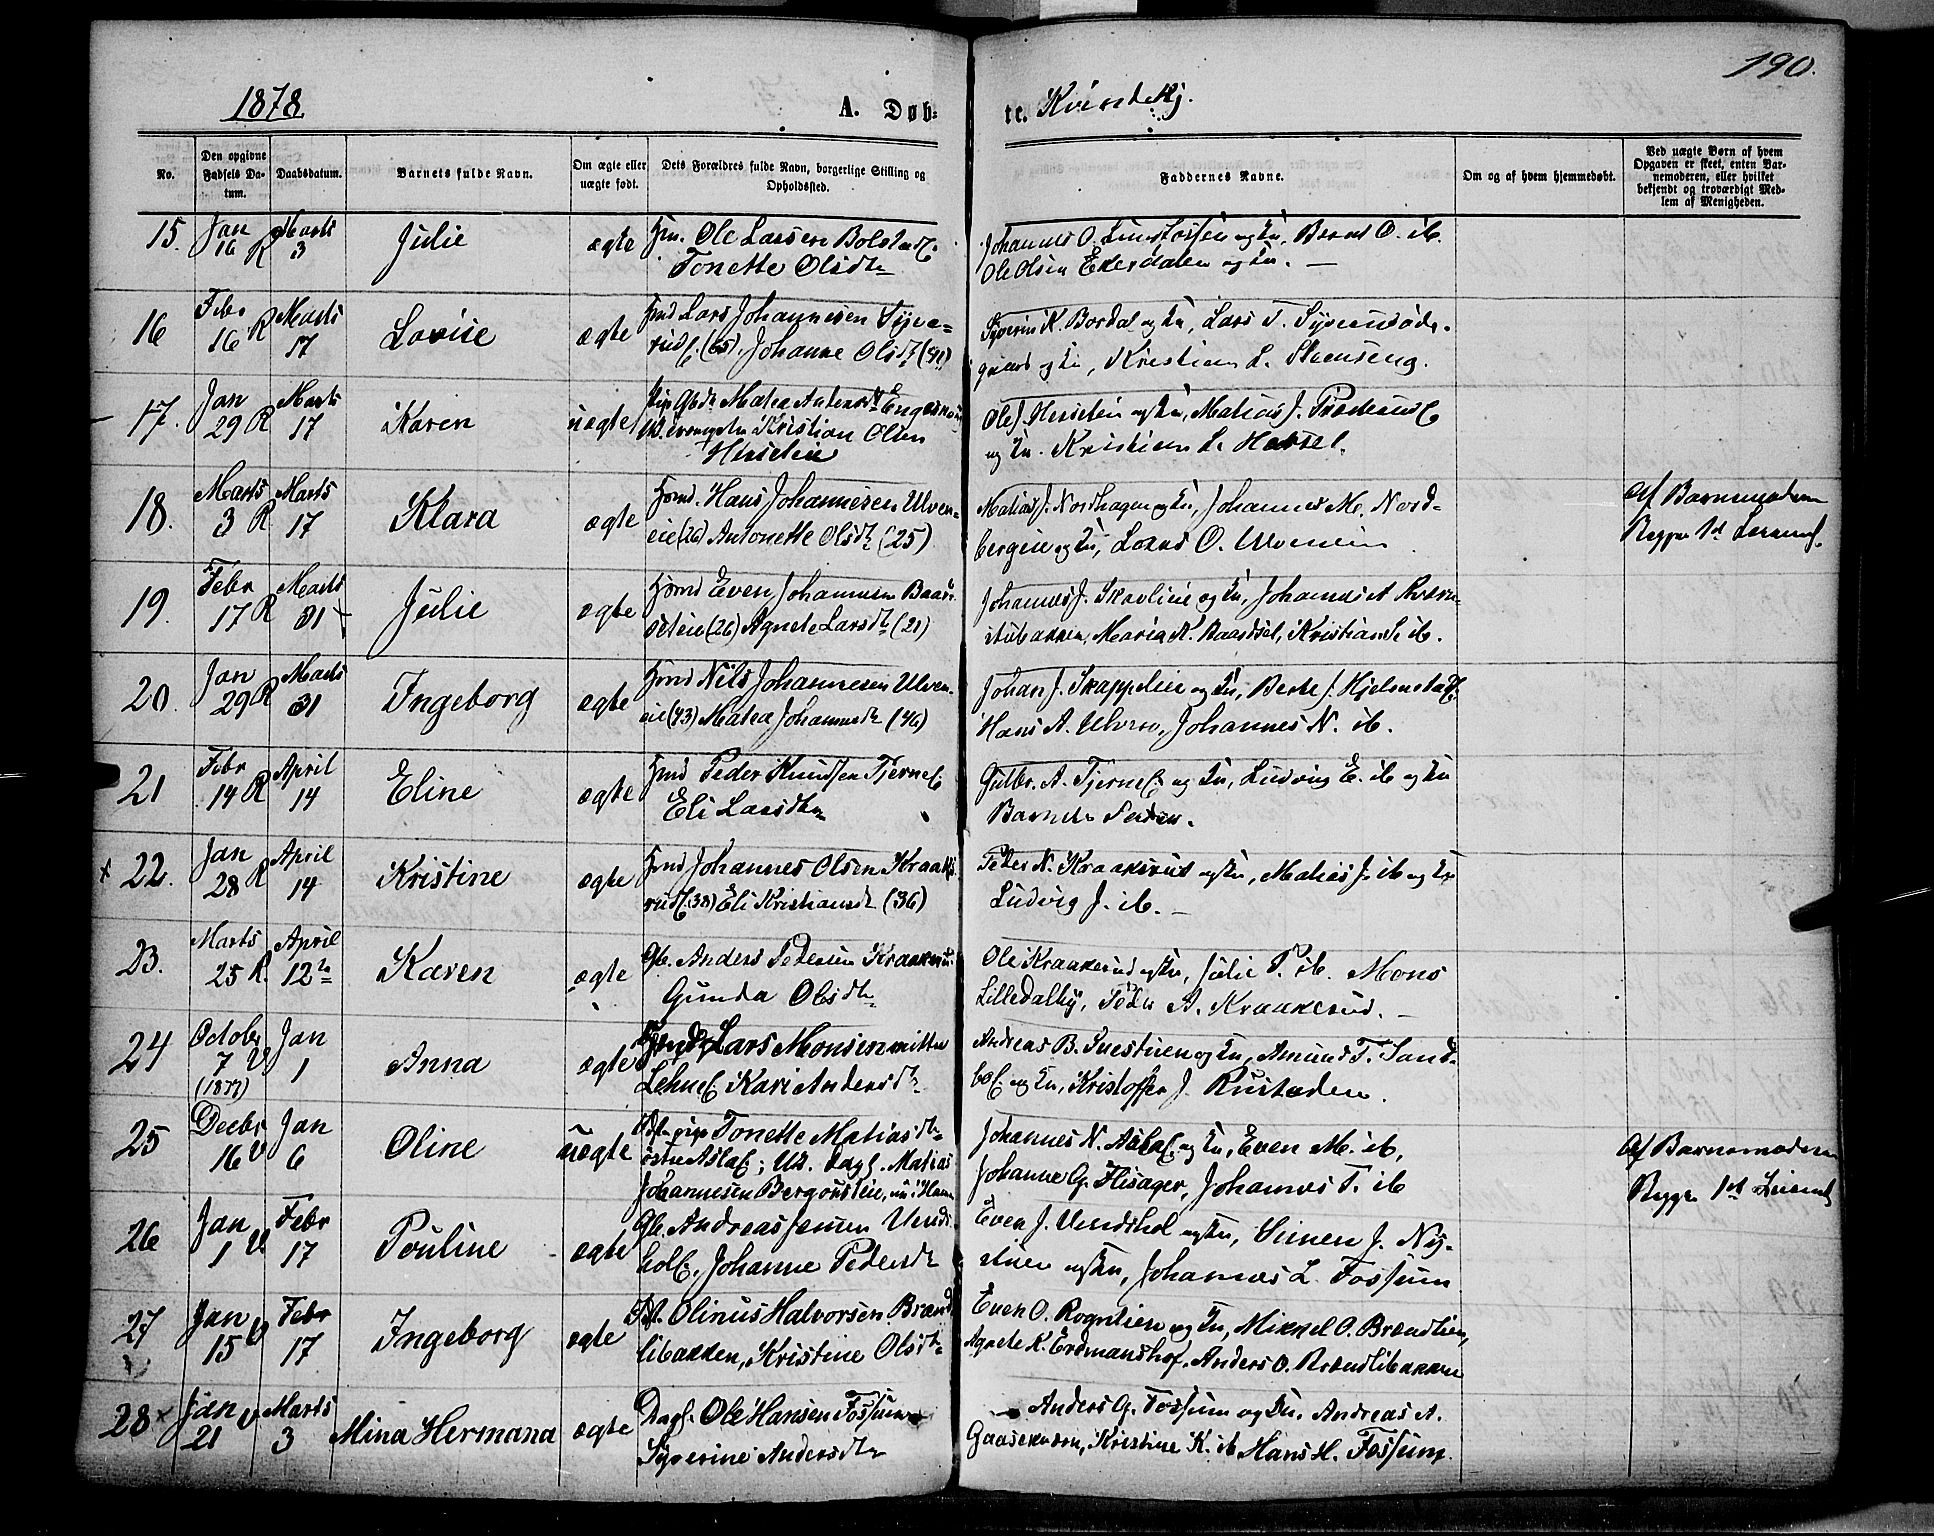 190.
1878
A. Døb-
te. Kvindekj.
No.
Den opgivne Fødsels Datum.
Daabsdatum.
Barnets fulde Navn.
Om ægte eller uægte født.
Dets Forældres fulde Navn, borgerlige Stilling og Opholdssted.
Faddernes Navne.
Om og af hvem hjemmedøbt.
Ved uægte Børn af hvem Opgaven er skeet, enten Barnemoderen, eller hvilket bekjendt og troværdigt Medlem af Menigheden.
15. Jan 16 R Marts 3 Julie ægte Ole Larsen Bolstad
Tonette Olsdtr
Johannes O. og Kn, Bernt O. ib.
Ole Olsen Ekersdalen og Kn. —
16 Febr 16 R Marts 17 Lovise ægte Lars Johannesen Syve-
rud (65), Johanne Olsdtr
Syverin K. Bordal og Kn, Lars T.
og Kn, Kristian L. Steenseng.
17. Jan 29 R Marts 17 Karen uægte Pige Gbdtr Matea
Kristian Olsen
Herselein
Ole J. Herselein og Kn, Matias J.
og Kn. Kristian L. Hersel.
18. Marts 3 R Marts 17 Klara ægte Hans Johannesen Ulven-
eie (26) Antonette Olsdtr (25)
Matias J. Nordhagen og Kn, Johannes M. Nord-
bergeie og Kn, O. Ulveneie
Af Barnemoderen
Begge 1st Leierml.
19. Febr 17 R Marts 31 Julie ægte Even Johannesen Baard-
seteie (26) Agnete Larsdtr (21)
Johannes J. Skovlieie og Kn, Johannes A
Maria A. Baardset, Kristian S. ib.
20. Jan 29 R Marts 31 Ingeborg ægte Nils Johannesen Ulven-
eie (43) Matea Johannesdtr (46)
Johan J. Skappeleie og Kn, Berte J. Hjelmstad
Hans A. Ulven, Johannes N. ib.
21 Febr 14 R April 14 Eline ægte Peder Knudsen Tjerne
Eli Larsdtr
Gulbr. A. Tjerne og Kn, Ludvig E. ib og Kn
22. Jan 28 R April 14 Kristine ægte Johannes Olsen Kraaks-
rud (38) Eli Kristiansdtr (36)
Peder N. Kraaksrud og Kn, Matias J. ib og Kn
Ludvig J. ib. —
23. Marts 25 R. April 12te Karen ægte Gb. Anders Pedersen Kraaksrud
Gunda Olsdtr
Ole Kraakerud og Kn, Julie P. ib. Mons
Lilledalby, Peder A. Kraakerud. —
24 October 7 V (1877) Jan 1 Anna ægte Lars Monsen
Kari Andersdtr
Andreas B. og Kn, Amund T. Sand-
bøl og Kn, Kristoffer J. Rustaden.
25 Decbr 16 V Jan 6 Oline uægte Pige Tonette Matiasdtr
Østre Asla; Uk. Dagl. Matias
Johannesen
Johannes N. Asla og Kn, Even M. ib,
Johanne G. Flisager, Johannes T. ib
Af Barnemoderen
Begge 1st Leierml
26 Jan 1 V Febr 17 Pouline ægte Gb. Andreas Jensen Uends-
hol, Johanne Pedersdtr
Even J. Uendshol og Kn, Simen J. Ny-
stuen og Kn, Johannes L. Fossum
27 Jan 15 V Febr 17 Ingeborg ægte Olinus Halvorsen Brænd-
libakken, Kristine Olsdtr
Even O. Rogntien og Kn, Mikkel O. Brændlien,
Agnete K. Erdmanshof, Anders O. Brændlibakken
28 Jan 21 V Marts 3 Mina Hermana ægte Dagl. Ole Hansen Fossum
Syverine Andersdtr
Anders G. Fossum og Kn, Andreas A.
Gaasekværn, Kristine K. ib Hans H. Fossum.